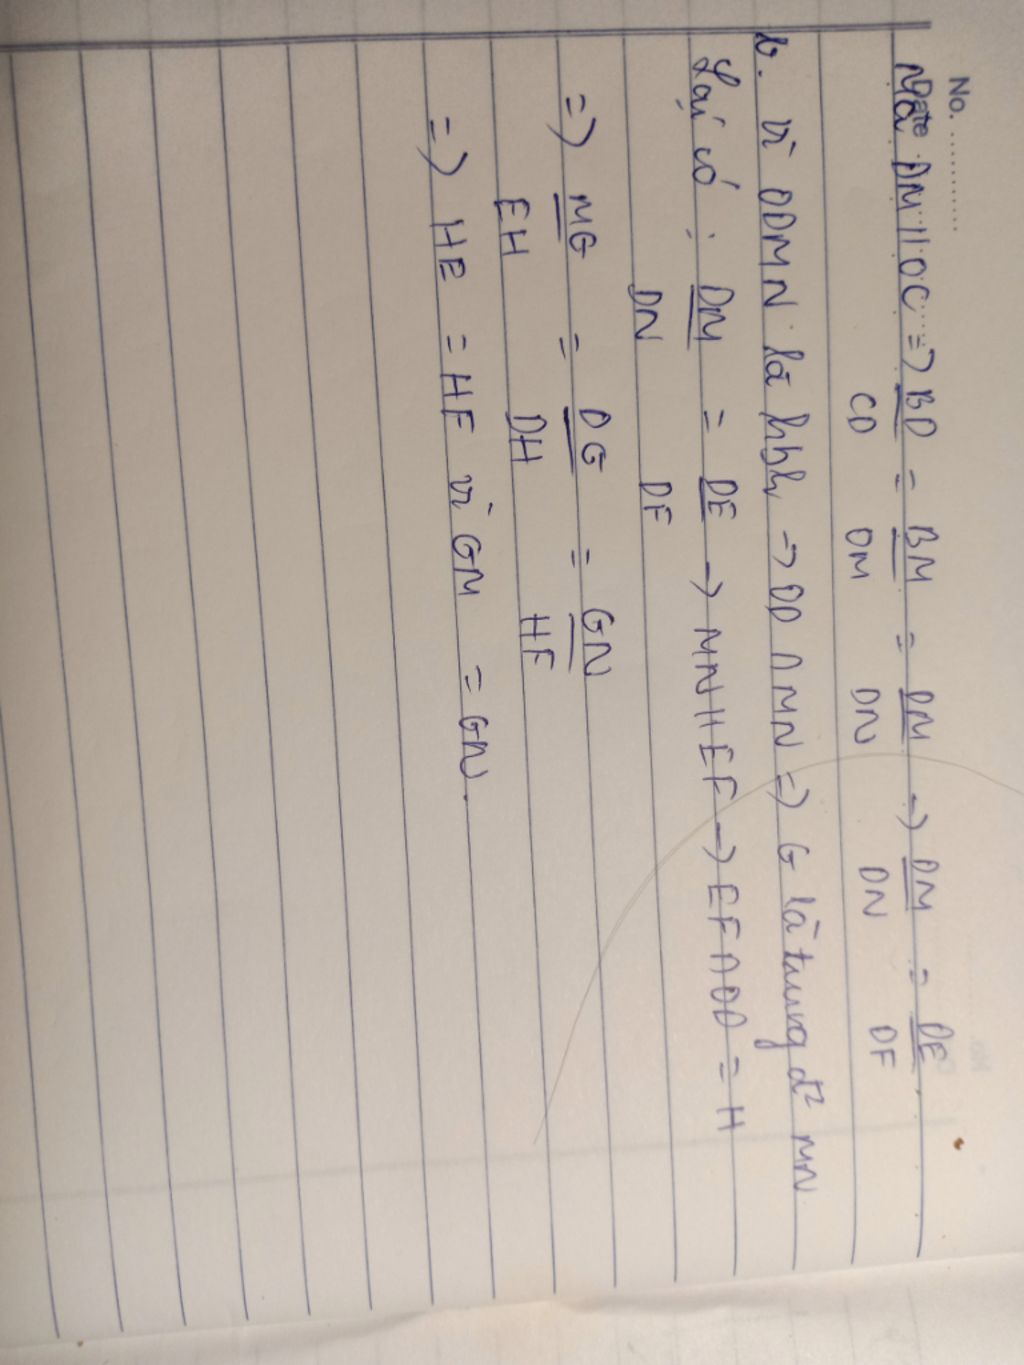 No. ............
Date
Mà DM // OC => BD/CD = BM/OM = DM/DN -> DM/DN = DE/DF
b. vì ODMN là hbh -> OD ∩ MN => G là trung đ² MN
Lại có : DM/DN = DE/DF -> MN // EF -> EF ∩ OD = H
=> MG/EH = DG/DH = GN/HF
=> HE = HF vì GM = GN.